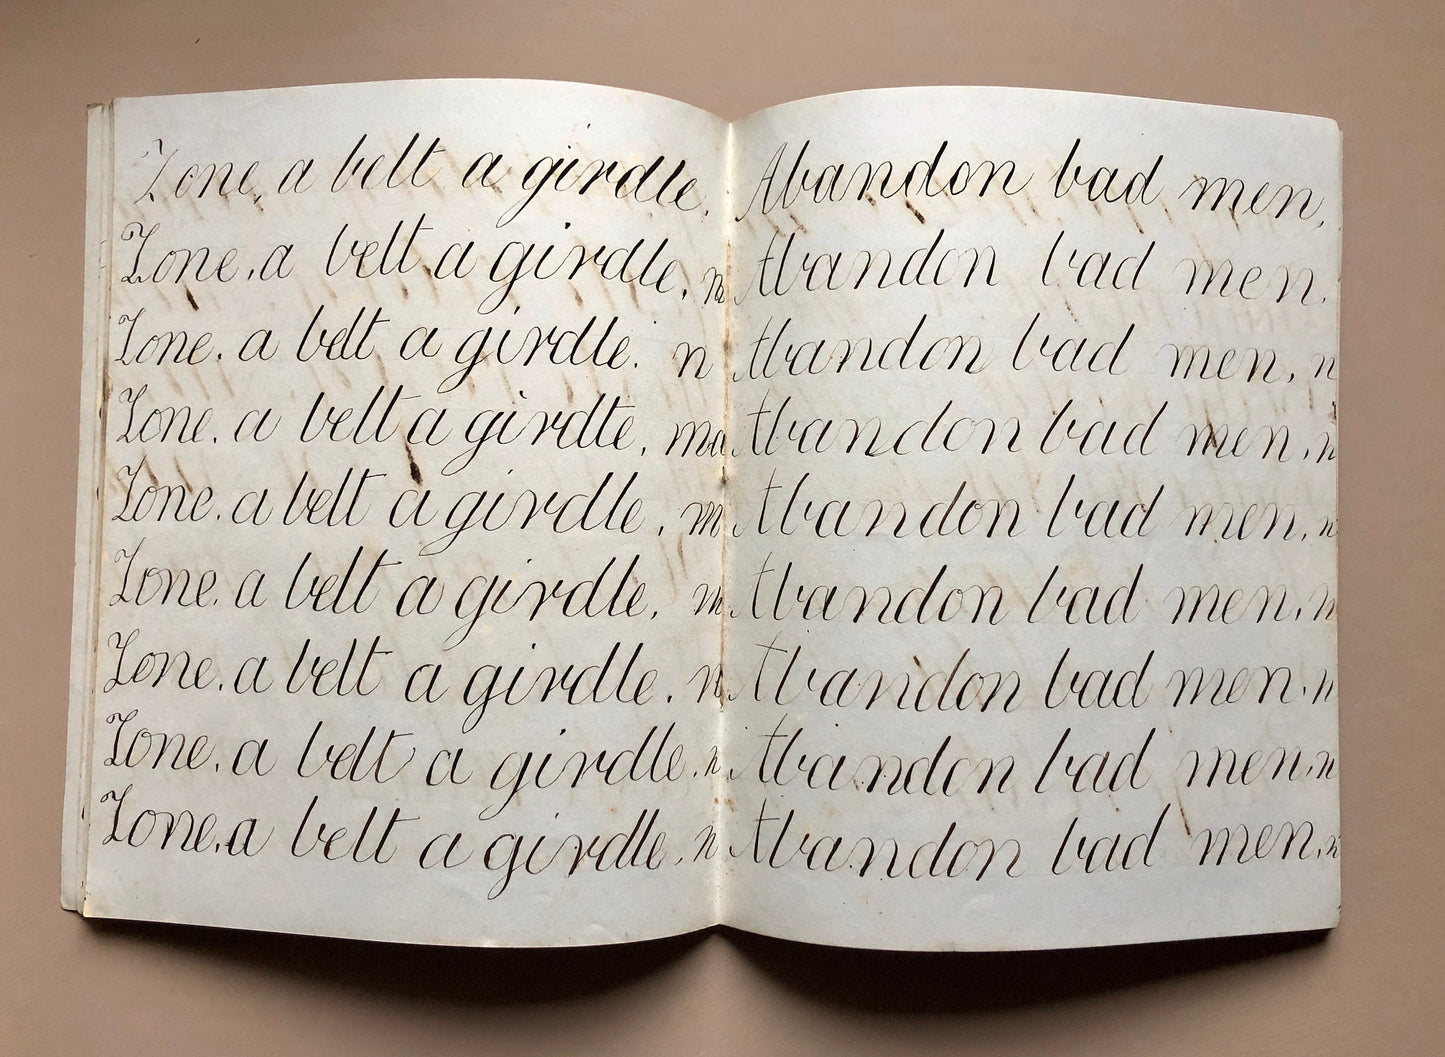 Zone, a belt a girdle,
Zone, a belt a girdle, n
Zone, a belt a girdle. n
Zone, a belt a girdle, ma
Zone, a belt a girdle, m
Zone, a belt a girdle, m
Zone, a belt a girdle, n
Zone, a belt a girdle, n
Zone, a belt a girdle, n
Abandon bad men,
Abandon bad men,
Abandon bad men, n
Abandon bad men, n
Abandon bad men, n
Abandon bad men, n
Abandon bad men, n
Abandon bad men, n
Abandon bad men, n